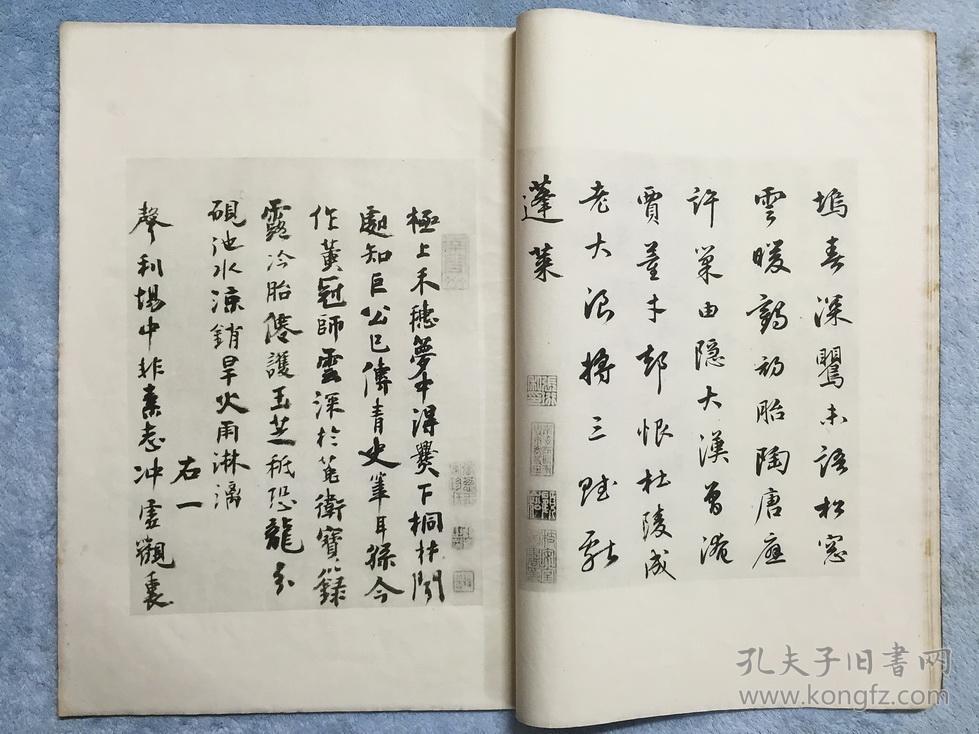 塢春深鷖未語松窓
雲暖鶴初胎陶唐應
許巢由隱大漢曾淹
賈董才却恨杜陵成
老大浪將三賦獻
蓬萊
極上禾穗夢中得爨下桐材聞
處知巨公已傳青史筆耳孫今
作黃冠師雲深於菟衛寶籙
露冷胎僊護玉芝秪恐龍分
硯池水涼銷旱火雨淋漓
右一
聲利場中非素志冲虛觀裏
孔夫子旧书网
www.kongfz.com